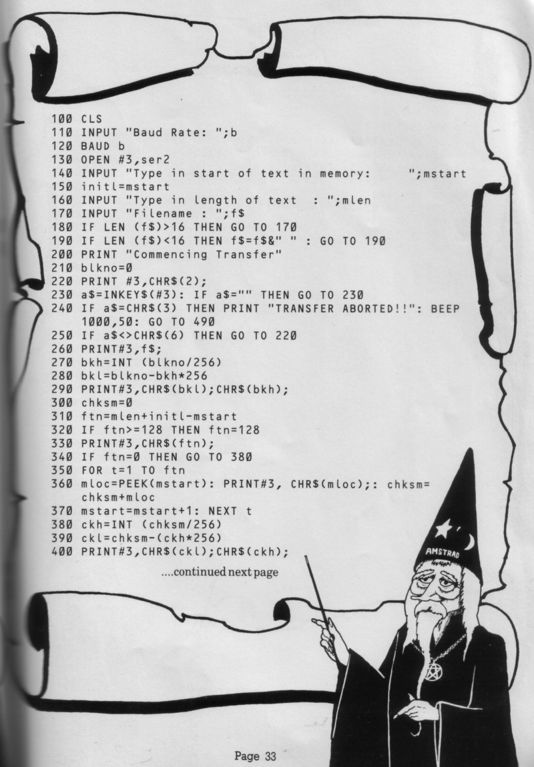 100 CLS
110 INPUT "Baud Rate: ";b
120 BAUD b
130 OPEN #3,ser2
140 INPUT "Type in start of text in memory:     ";mstart
150 initl=mstart
160 INPUT "Type in length of text  : ";mlen
170 INPUT "Filename : ";f$
180 IF LEN (f$)>16 THEN GO TO 170
190 IF LEN (f$)<16 THEN f$=f$&" " : GO TO 190
200 PRINT "Commencing Transfer"
210 blkno=0
220 PRINT #3,CHR$(2);
230 a$=INKEY$(#3): IF a$="" THEN GO TO 230
240 IF a$=CHR$(3) THEN PRINT "TRANSFER ABORTED!!": BEEP
1000,50: GO TO 490
250 IF a$<>CHR$(6) THEN GO TO 220
260 PRINT#3,f$;
270 bkh=INT (blkno/256)
280 bkl=blkno-bkh*256
290 PRINT#3,CHR$(bkl);CHR$(bkh);
300 chksm=0
310 ftn=mlen+initl-mstart
320 IF ftn>=128 THEN ftn=128
330 PRINT#3,CHR$(ftn);
340 IF ftn=0 THEN GO TO 380
350 FOR t=1 TO ftn
360 mloc=PEEK(mstart): PRINT#3, CHR$(mloc);: chksm=
chksm+mloc
370 mstart=mstart+1: NEXT t
380 ckh=INT (chksm/256)
390 ckl=chksm-(ckh*256)
400 PRINT#3,CHR$(ckl);CHR$(ckh);
....continued next page
AMSTRAD
Page 33